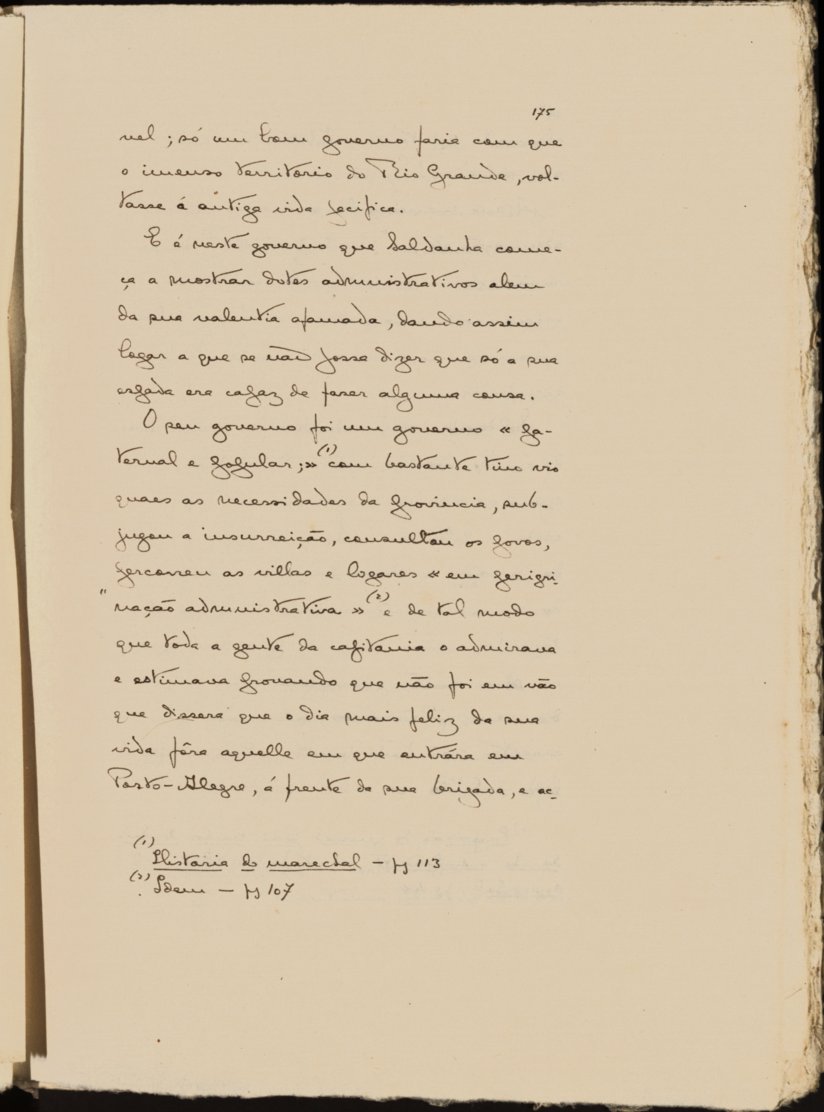 175
vel; só um bom governo faria com que
o imenso territorio do Rio Grande, vol-
tasse á antiga vida pacifica.
E é neste governo que Saldanha come-
ça a mostrar dotes administrativos alem
da sua valentia afamada, dando assim
logar a que se não fosse dizer que só a sua
espada era capaz de fazer alguma cousa.
O seu governo foi um governo « pa-
ternal e popular;» (1) com bastante tino vio
quaes as necessidades da provincia, sub-
jugou a insurreição, consultou os povos,
percorreu as villas e logares « em perigri-
" nação administrativa » (2) e de tal modo
que toda a gente da capitania o admirava
e estimava provando que não foi em vão
que dissera que o dia mais feliz da sua
vida fôra aquelle em que entrára em
Porto-Alegre, á frente da sua brigada, e ac-
(1) Historia do marechal — pg 113
(2) Idem — pg 107